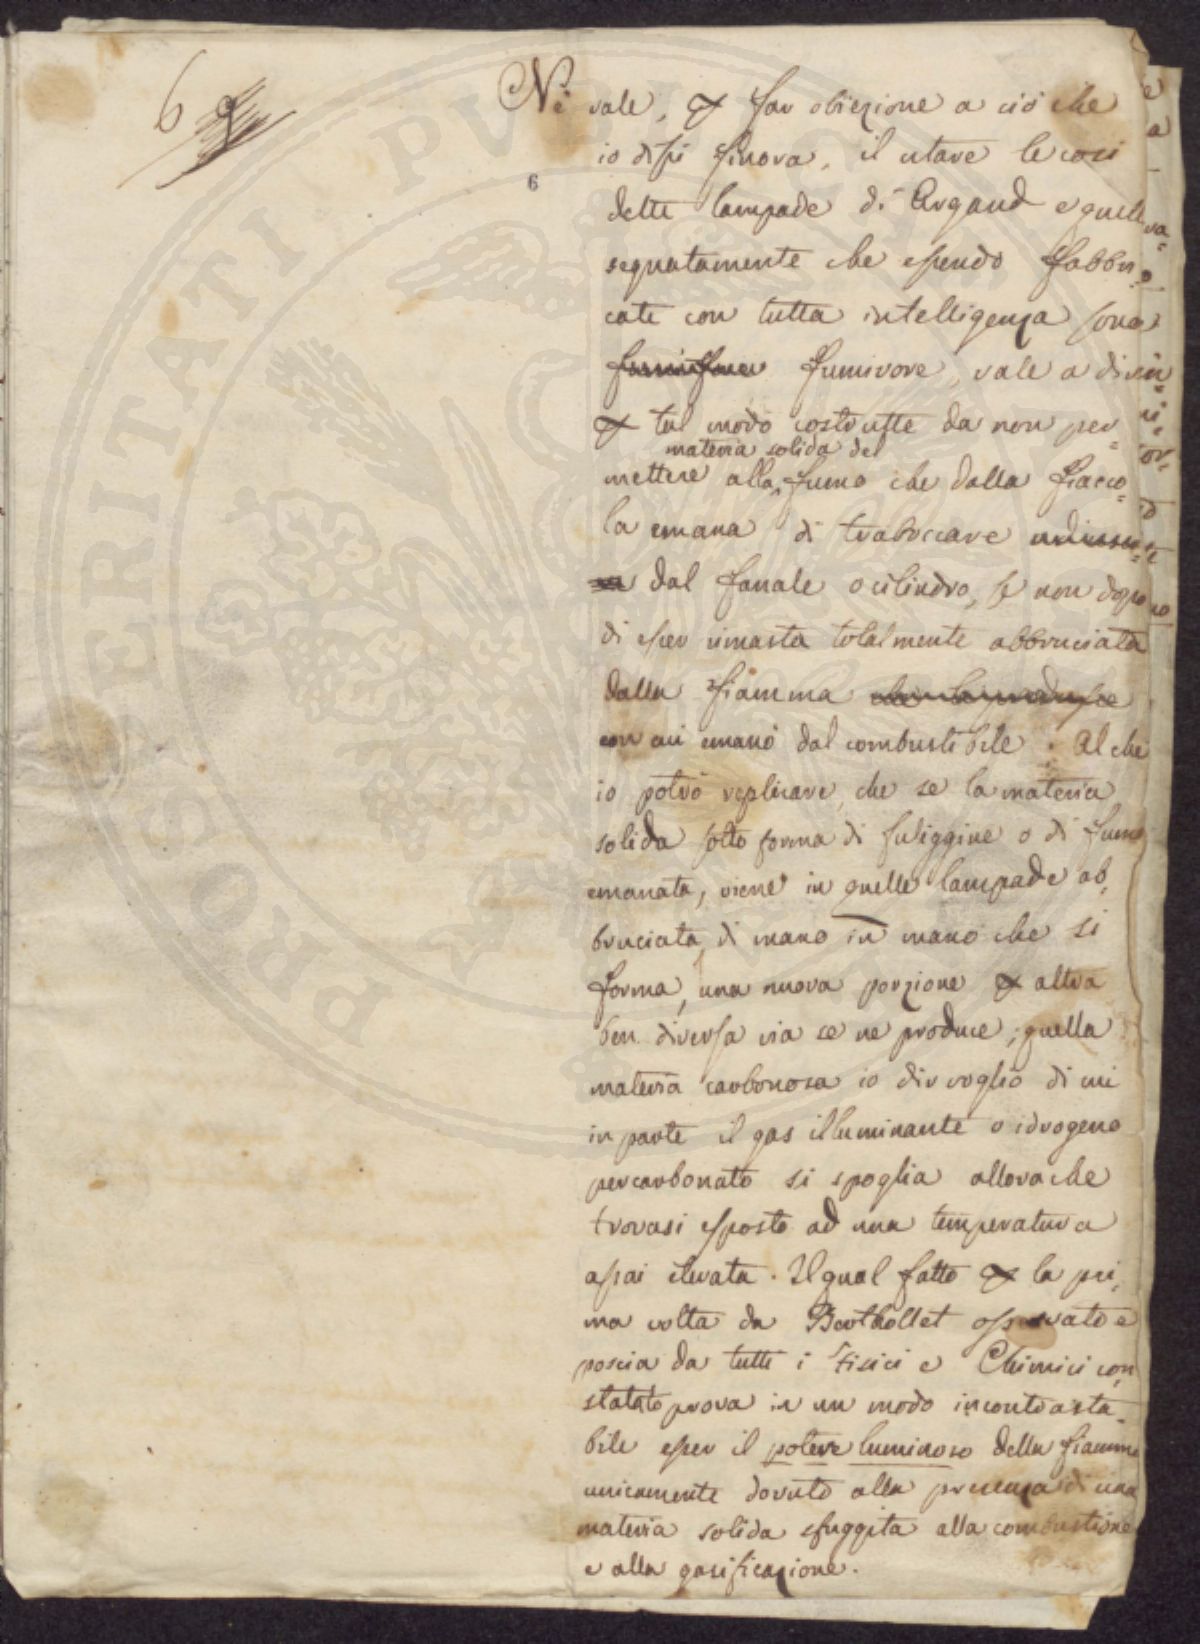 6
6
Nè vale, per far obiezione a ciò che
io dissi finora, il citare le così
dette lampade di Argand e quelle
segnatamente che essendo fabbri
cate con tutta intelligenza sono
fumivore, vale a dire
per tal modo costrutte da non per=
materia solida del
mettere alla fumo che dalla fiacco=
la emana di traboccare
dal fanale o cilindro, se non dopo
di esser rimasta totalmente abbruciata
dalla fiamma che la produsse
con cui emanò dal combustibile. Al che
io potrò replicare, che se la materia
solida sotto forma di fuliggine o di fumo
emanata, viene in quelle lampade ab=
bruciata, di mano in mano che si
forma, una nuova porzione per altra
ben diversa via se ne produce; quella
materia carbonosa io dir voglio di cui
in parte il gas illuminante o idrogeno
percarbonato si spoglia allora che
trovasi esposto ad una temperatura
assai elevata. Il qual fatto per la pri=
ma volta da Berthollet osservato e
poscia da tutti i Fisici e Chimici con
statato prova in un modo incontrasta=
bile esser il potere luminoso della fiamma
unicamente dovuto alla presenza di una
materia solida sfuggita alla combustione
e alla gasificazione.
PROSPERITATI PUBLICAE